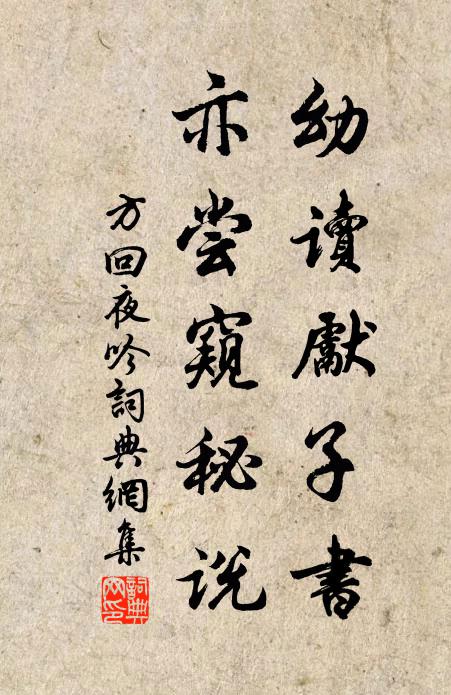 幼讀獻子書
亦尝窺秘说
方回夜吟詞典網集
詞典网印